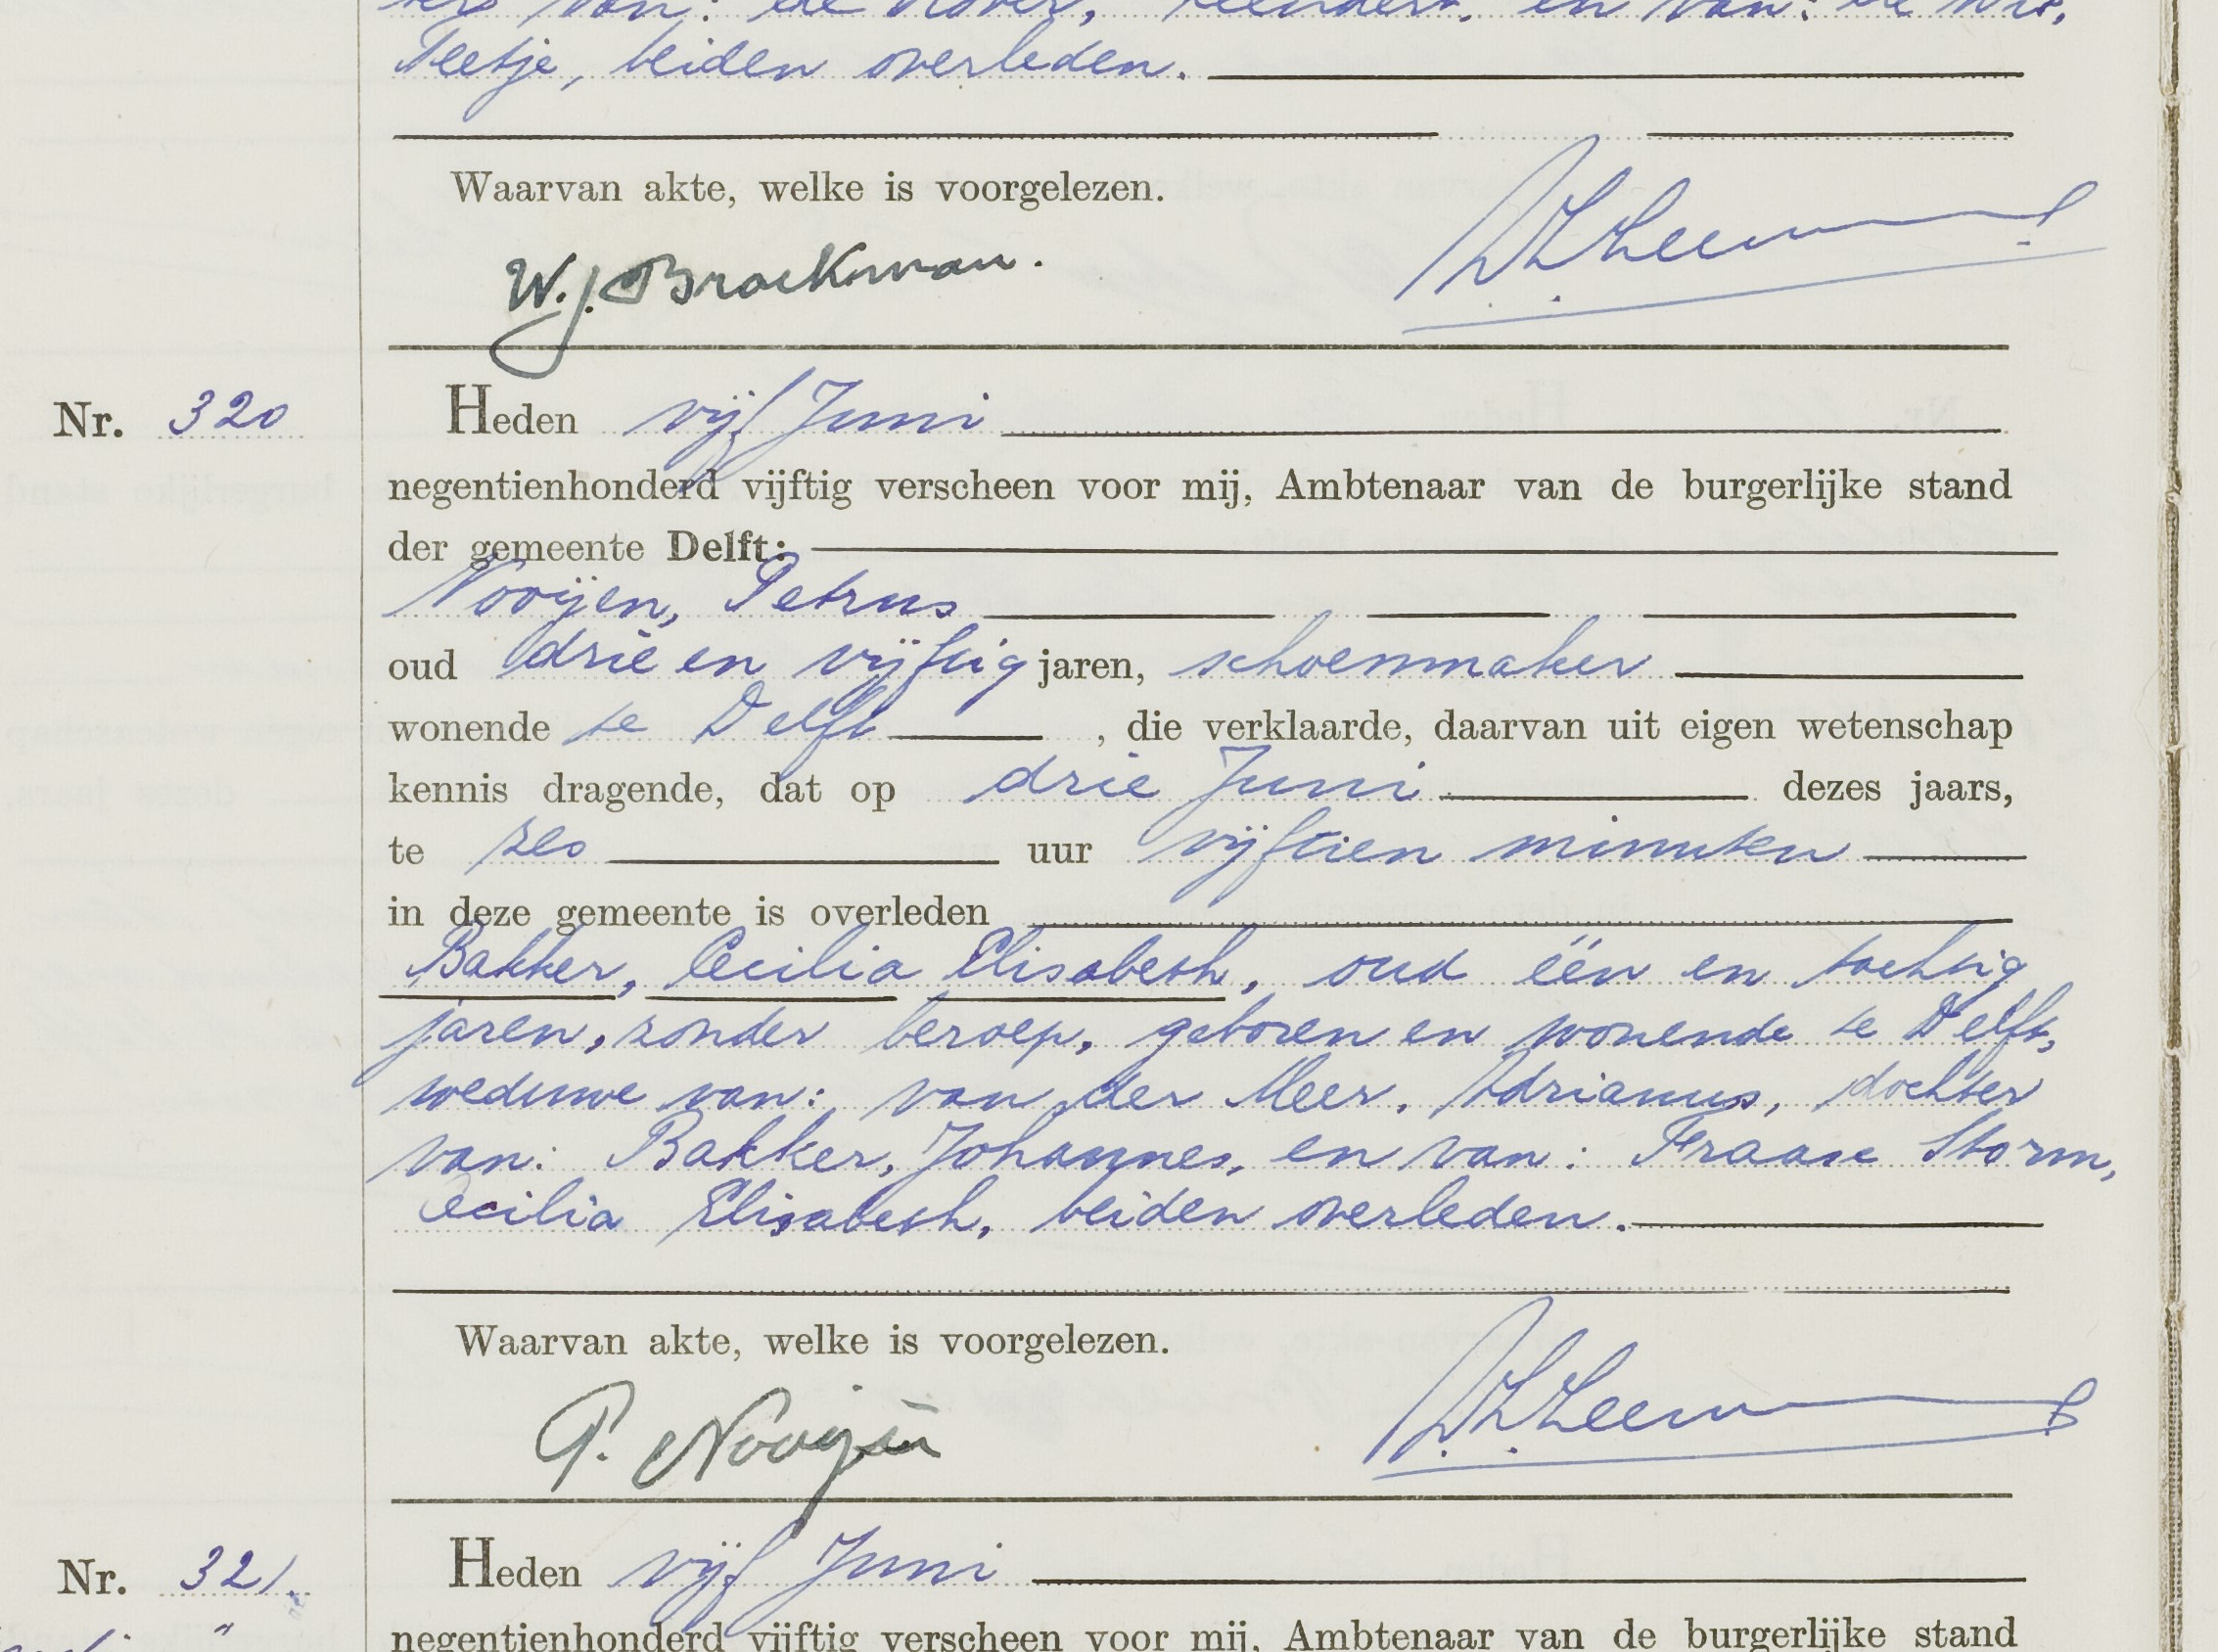 van: de
Teetje, beiden overleden.
Waarvan akte, welke is voorgelezen.
W.J. Brockman.
Nr. 320
Heden vijf Juni
negentienhonderd vijftig verscheen voor mij, Ambtenaar van de burgerlijke stand
der gemeente Delft:
Nooijen, Petrus
oud drie en vijftig jaren, schoenmaker
wonende te Delft , die verklaarde, daarvan uit eigen wetenschap
kennis dragende, dat op drie Juni dezes jaars,
te zes uur vijftien minuten
in deze gemeente is overleden
Bakker, Cecilia Elisabeth, oud één en tachtig
jaren, zonder beroep, geboren en wonende te Delft,
weduwe van: van der Meer, Adrianus, dochter
van: Bakker, Johannes, en van: Storm,
Cecilia Elisabeth, beiden overleden.
Waarvan akte, welke is voorgelezen.
P. Nooijen
Nr. 321.
Heden vijf Juni
negentienhonderd vijftig verscheen voor mij, Ambtenaar van de burgerlijke stand